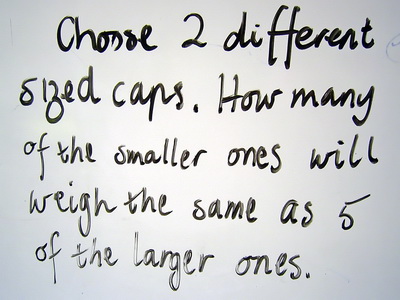 Choose 2 different
sized caps. How many
of the smaller ones will
weigh the same as 5
of the larger ones.